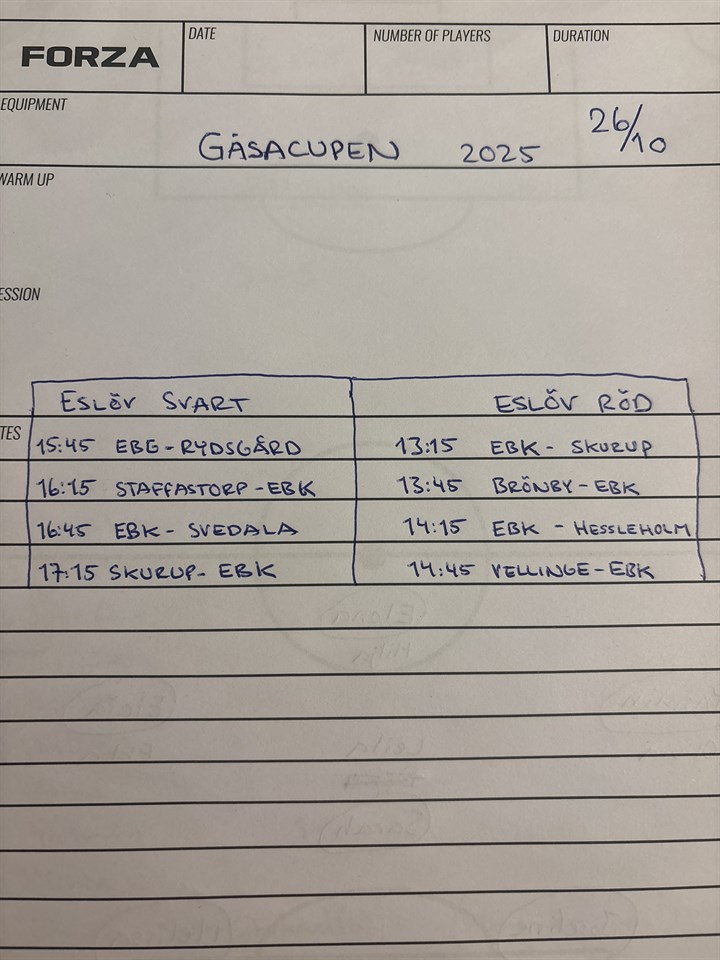 FORZA
DATE
NUMBER OF PLAYERS
DURATION
EQUIPMENT
GÅSACUPEN 2025 26/10
WARM UP
ESSION
ESLÖV SVART
15:45 EBG - RYDSGÅRD
16:15 STAFFASTORP - EBK
16:45 EBK - SVEDALA
17:15 SKURUP - EBK
ESLÖV RÖD
13:15 EBK - SKURUP
13:45 BRÖNBY - EBK
14:15 EBK - HESSLEHOLM
14:45 VELLINGE - EBK
TES